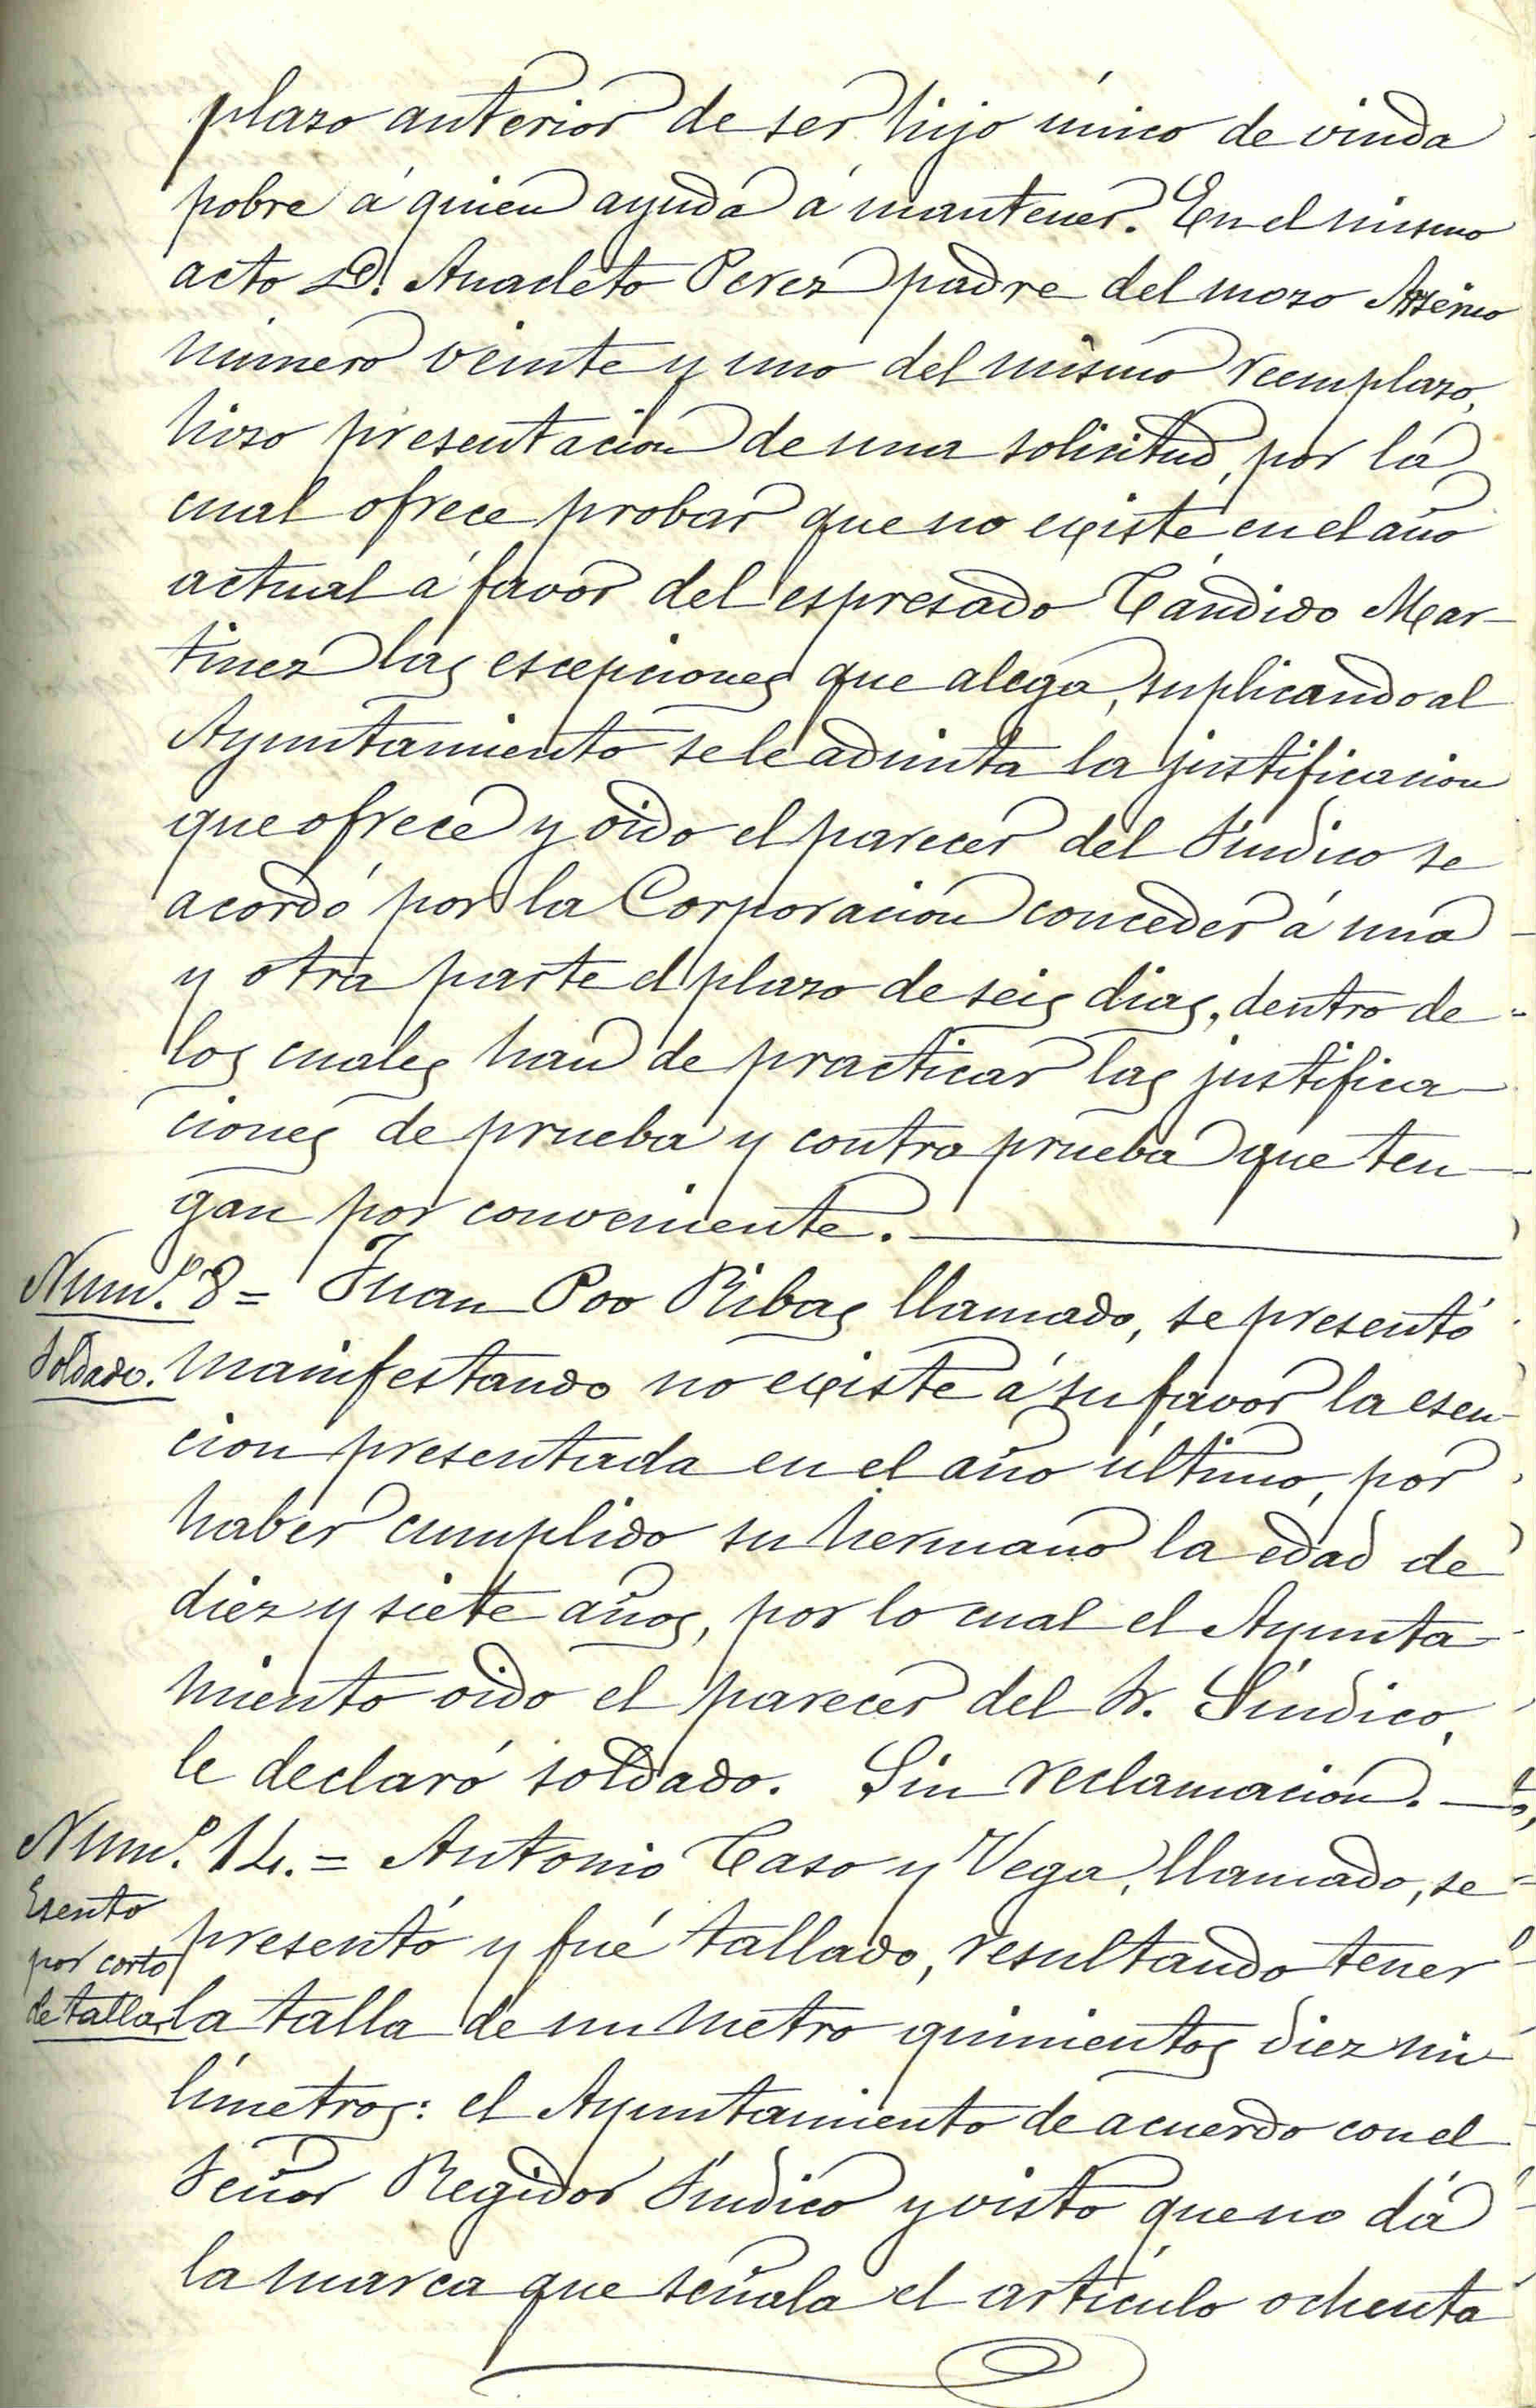 plazo anterior de ser hijo único de viuda
pobre á quien ayuda á mantener. En el mismo
acto D. Anacleto Perez padre del mozo Arsenio
número veinte y uno del mismo reemplazo,
hizo presentacion de una solicitud, por la
cual ofrece probar que no existe en el año
actual á favor del espresado Cándido Mar-
tinez las escepciones que alega, suplicando al
Ayuntamiento se le admita la justificacion
que ofrece y oido el parecer del Síndico se
acordó por la Corporacion conceder á una
y otra parte el plazo de seis dias, dentro de
los cuales han de practicar las justifica-
ciones de prueba y contra prueba que ten-
gan por conveniente.
Num.º 8 = Juan Poo Ribas llamado, se presentó
Soldado. manifestando no existe á su favor la esen-
cion presentada en el año último, por
haber cumplido su hermano la edad de
diez y siete años, por lo cual el Ayunta-
miento oido el parecer del Sr. Síndico,
le declaró soldado. Sin reclamacion.
Num.º 14. = Antonio Caso y Vega, llamado, se
Esento
presentó y fué tallado, resultando tener
por corto
de talla. la talla de un metro quinientos diez mi-
límetros: el Ayuntamiento de acuerdo con el
Señor Regidor Síndico y visto que no dá
la marca que señala el artículo ochenta